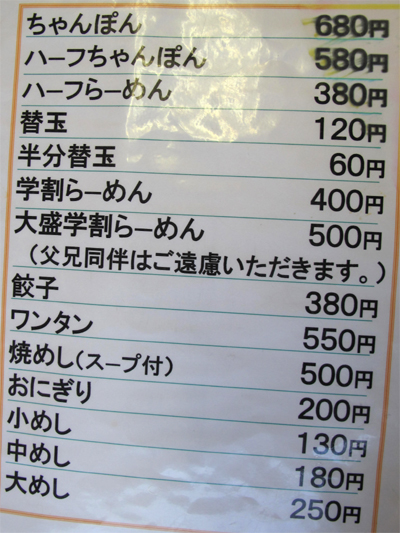 ちゃんぽん 680円
ハーフちゃんぽん 580円
ハーフらーめん 380円
替玉 120円
半分替玉 60円
学割らーめん 400円
大盛学割らーめん 500円
（父兄同伴はご遠慮いただきます。）
餃子 380円
ワンタン 550円
焼めし（スープ付） 500円
おにぎり 200円
小めし 130円
中めし 180円
大めし 250円